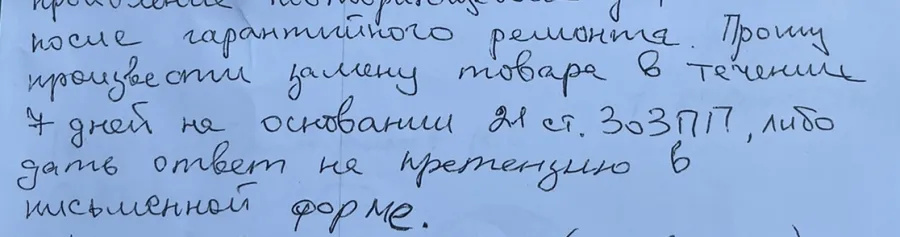 после гарантийного ремонта. Прошу
произвести замену товара в течении
7 дней на основании 21 ст. ЗоЗПП, либо
дать ответ на претензию в
письменной форме.